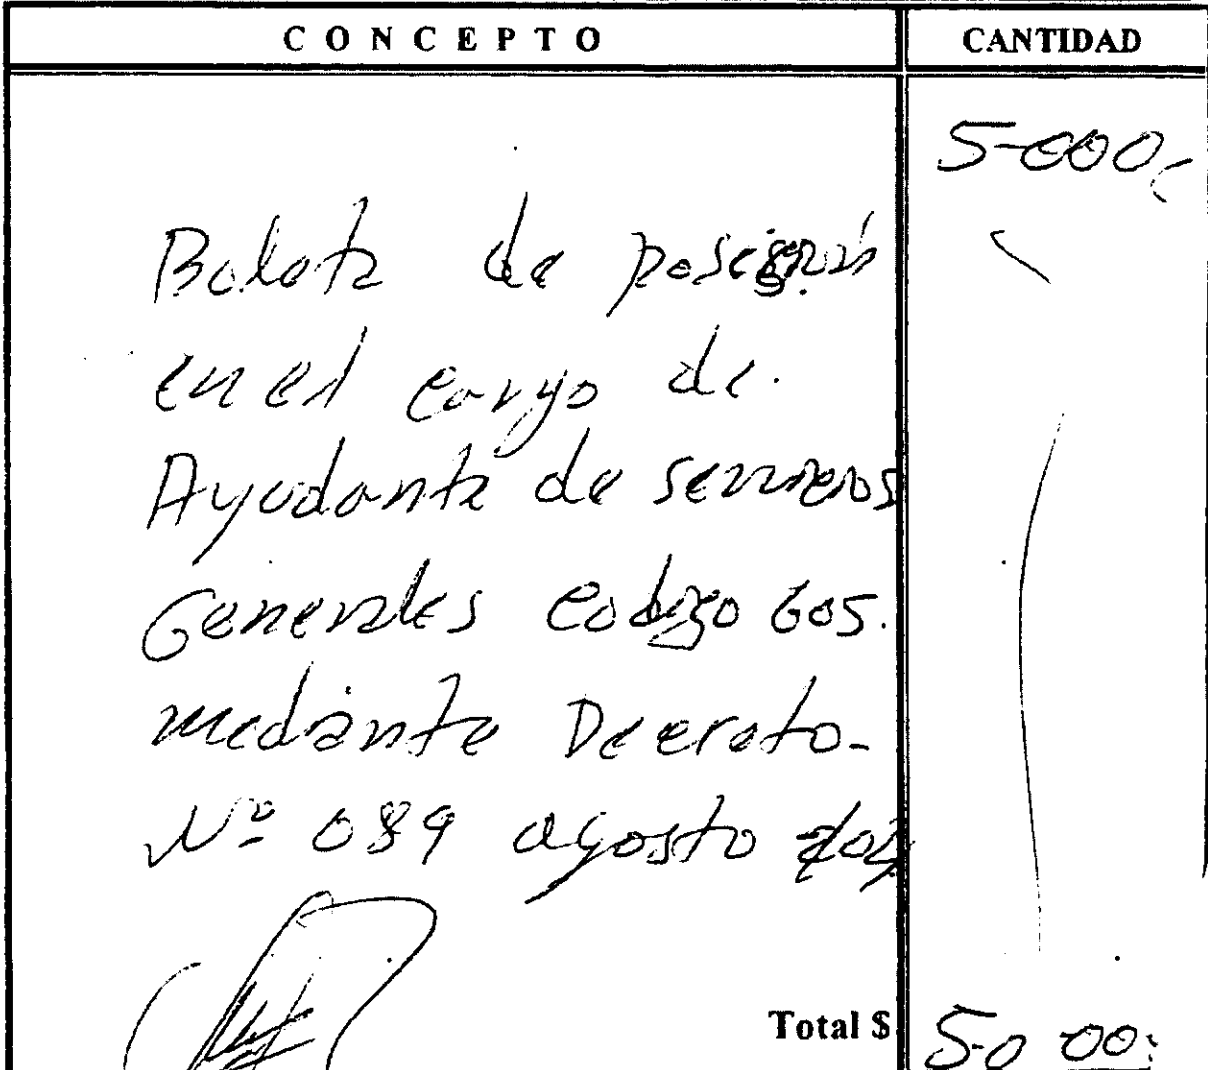 CONCEPTO CANTIDAD
5-000,-
Boleta de posesión
en el cargo de.
Ayudante de servicios
Generales codigo 605.
mediante Decreto-
Nº 089 agosto
Total $ 5-0 00: